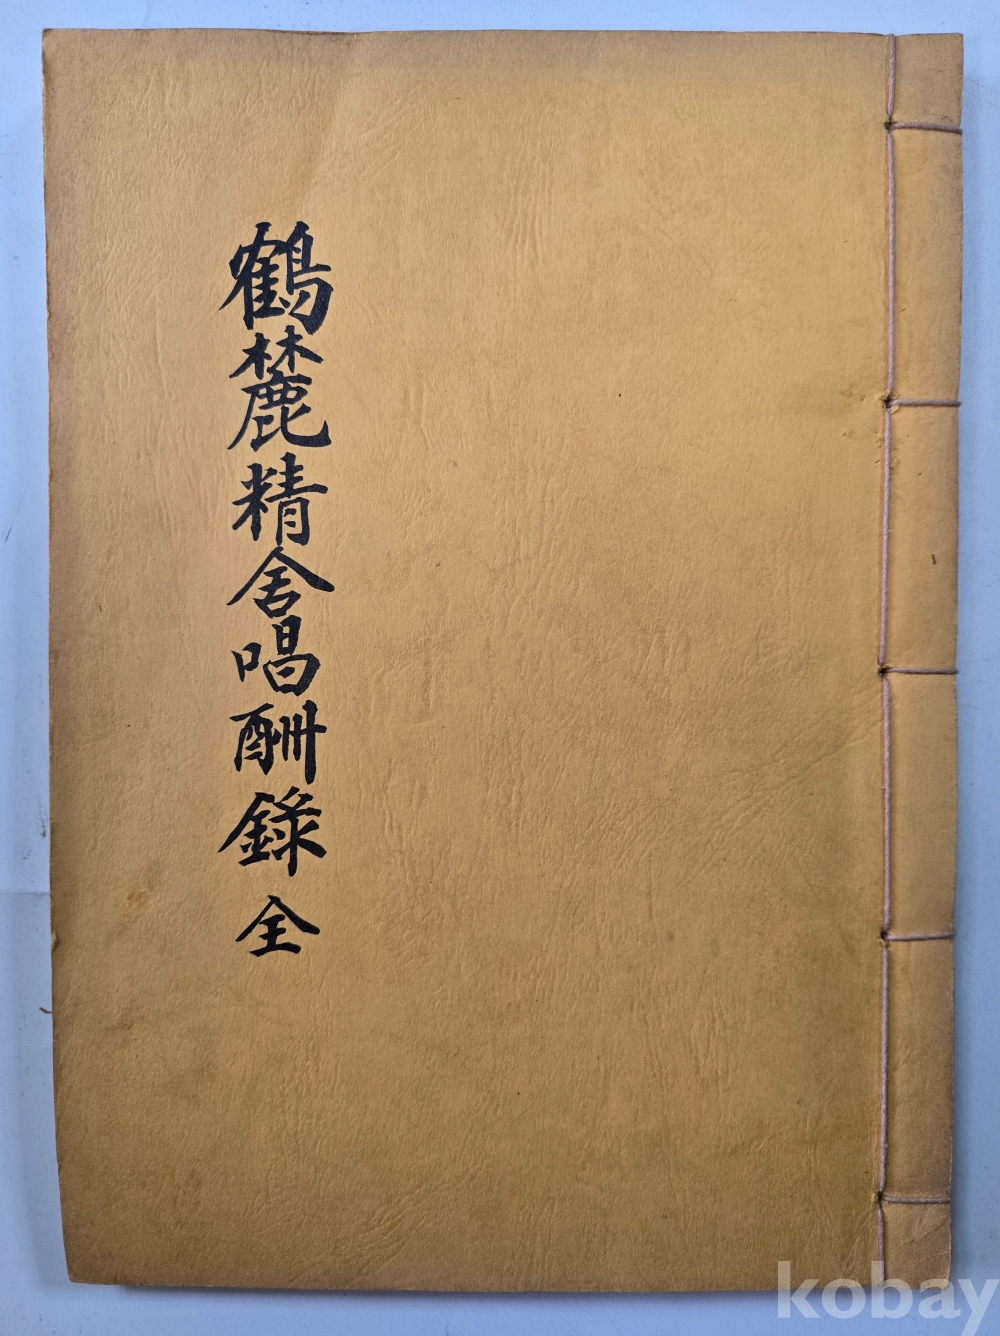 鶴麓精舍唱酬錄 全
kobay